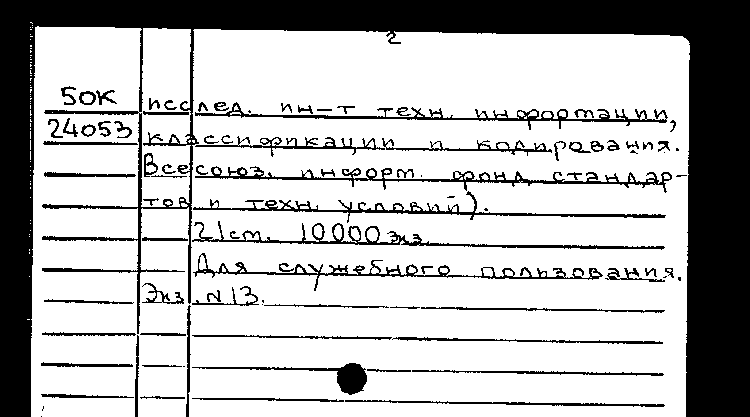 2
50К исслед. ин-т техн. информации,
24053 классификации и кодирования.
Всесоюз. информ. фонд стандар-
тов и техн. условий).
21 см. 10000 экз.
Для служебного пользования.
Экз. N 13.